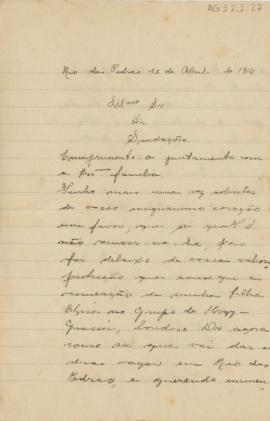 AG 3.2.2.27
Rio das Pedras 12 de Abril de 1914
Illmo Snr
Dr.
Saudação.
Cumprimento-o juntamente com
a Exma familia
Venho mais uma vez solicitar
de vosso magnanimo coração
um favor, que sei que V. S.
não recusar-me-ha, pois
foi debaixo de vossa valiosa
protecção que consegui a
nomeação de minha filha
no Grupo de Mogy-
Guassú, bondoso Dr agora
como sei que vai dar-se
duas vagas em Rio das
Pedras, e querendo